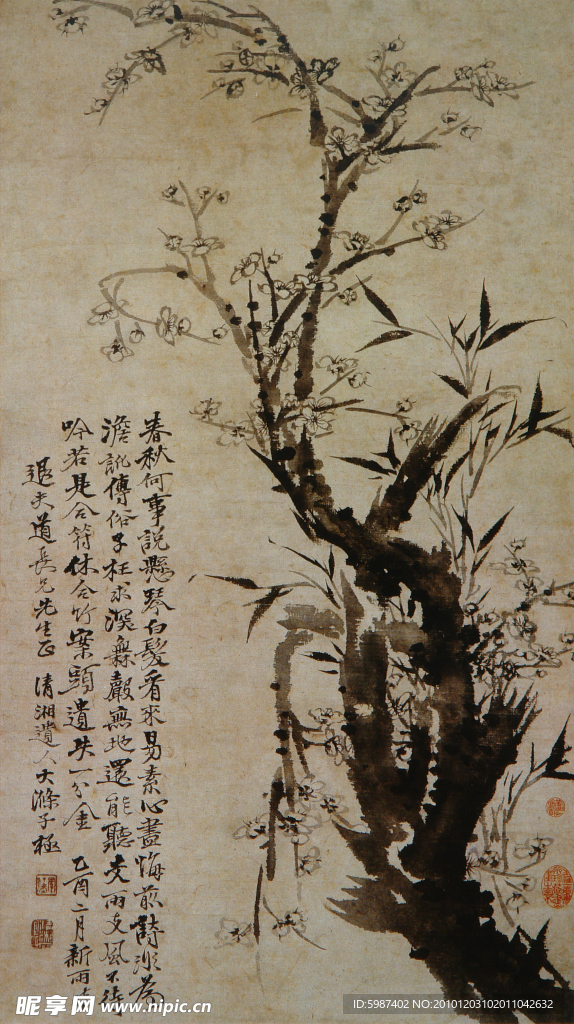 春秋何事說懸琴白髮看來易素心盡悔前詩為
澹訛傳俗子枉求深無地還能聽支雨支風不待
吟若是合符休合竹案頭遺失一分金 乙酉二月新雨
退夫道長兄先生正 清湘遺人大滌子極
昵享网 www.nipic.cn
ID:5987402 NO:20101203102011042632